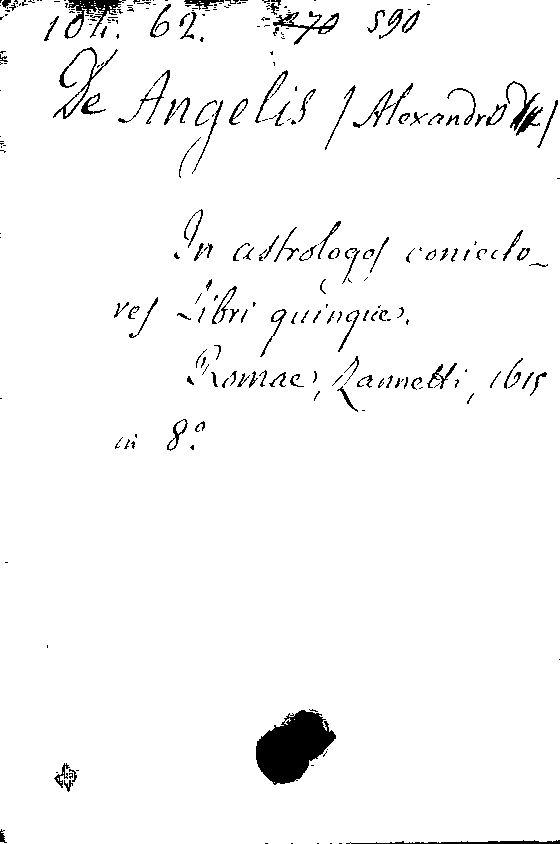 104. 62. 270 590
De Angelis / Alexandro /
In astrologos coniecto_
res Libri quinque.
Romae, Zannetti, 1615
in 8.º